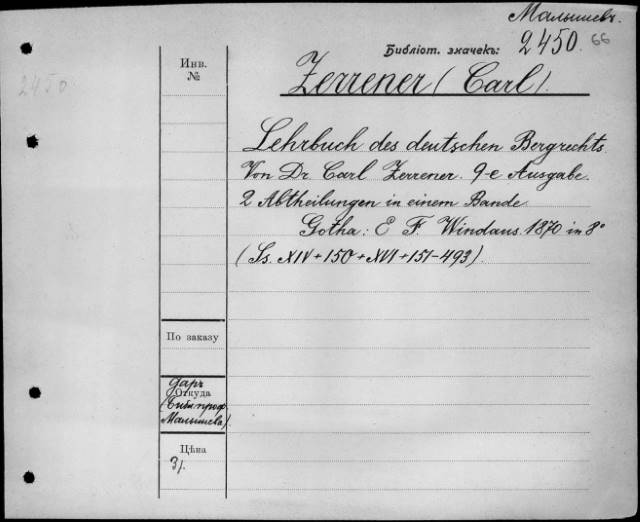 Малышевъ.
Библіот. значекъ: 2450. 66
2450
Инв.
№
Zerrener (Carl).
Lehrbuch des deutschen Bergrechts.
Von Dr. Carl Zerrener. 9-e Ausgabe.
2 Abtheilungen in einem Bande.
Gotha: E F. Windaus. 1870 in 8°
(Ss. XIV+150+XVI+151-493).
По заказу
даръ
Откуда
(библ. проф.
Малышева).
Цѣна
3/.